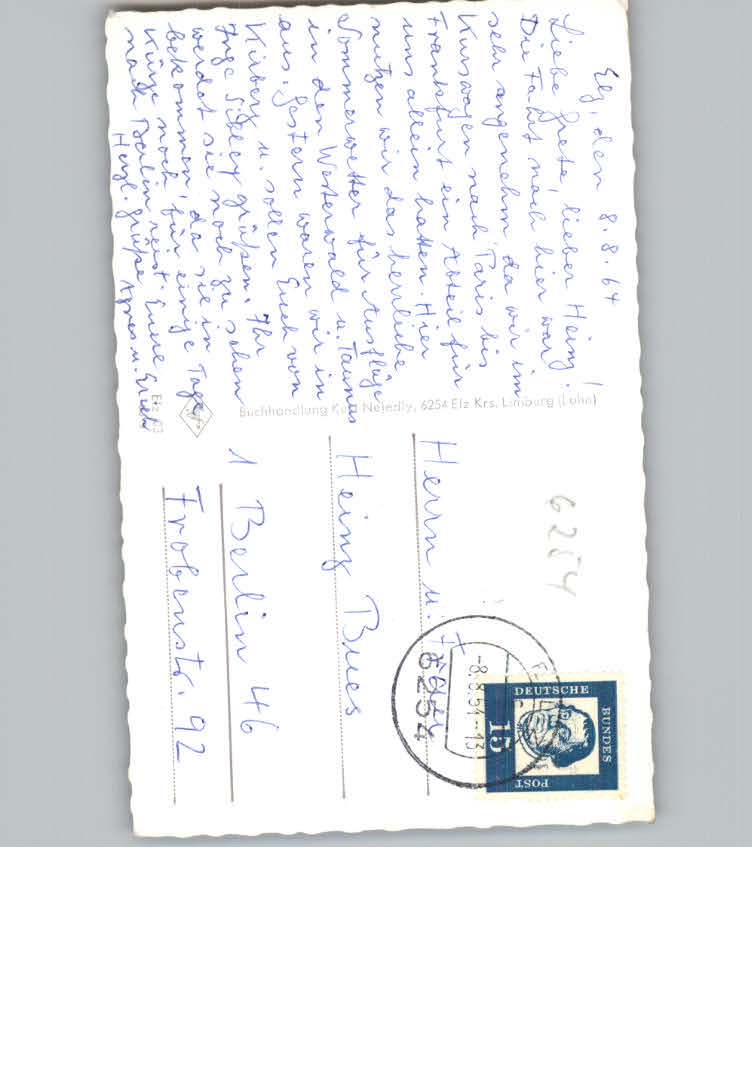 Elz, den 8.8.64
Liebe Grete, lieber Heinz!
Die Fahrt nach hier war
sehr angenehm da wir im
Kurswagen nach Paris bis
Frankfurt ein Abteil für
uns allein hatten. Hier
nutzen wir das herrliche
Sommerwetter für Ausflüge
in den Westerwald u. Taunus
aus. Gestern waren wir in
Kirberg u. sollen Euch von
Inge grüßen. Ihr
werdet sie noch zu sehen
bekommen, da sie in
Kürze noch für einige Tage
nach Berlin reist. Eure
Herzl. Grüße Agnes u. Erich
Elz 83
Buchhandlung Kurt Nejedly, 6254 Elz Krs. Limburg (Lahn)
6254
Herrn u. Frau
Heinz Bues
1 Berlin 46
Frobenstr. 92
6254
-8.8.64-13
DEUTSCHE
BUNDES
POST
15